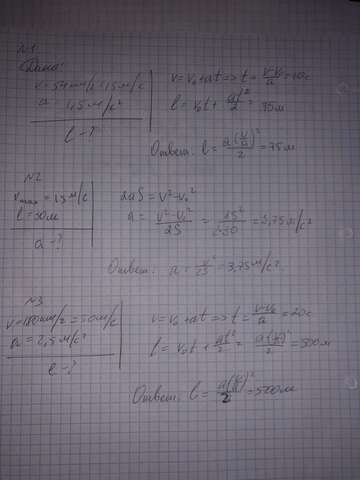 N1
Дано:
v=54км/ч=15м/с
a=1,5м/с²
l-?
v=v₀+at=>t=(v-v₀)/a=10с
l=v₀t+at²/2=75м
Ответ: l=a(v/a)²/2=75м
N2
vmax=15м/с
l=30м
a-?
2aS=v²-v₀²
a=(v²-v₀²)/2S=15²/2·30=3,75м/с²
Ответ: a=v²/2S=3,75м/с²
N3
v=180км/ч=50м/с
a=2,5м/с²
l-?
v=v₀+at=>t=(v-v₀)/a=20с
l=v₀t+at²/2=a(v/a)²/2=500м
Ответ: l=a(v/a)²/2=500м